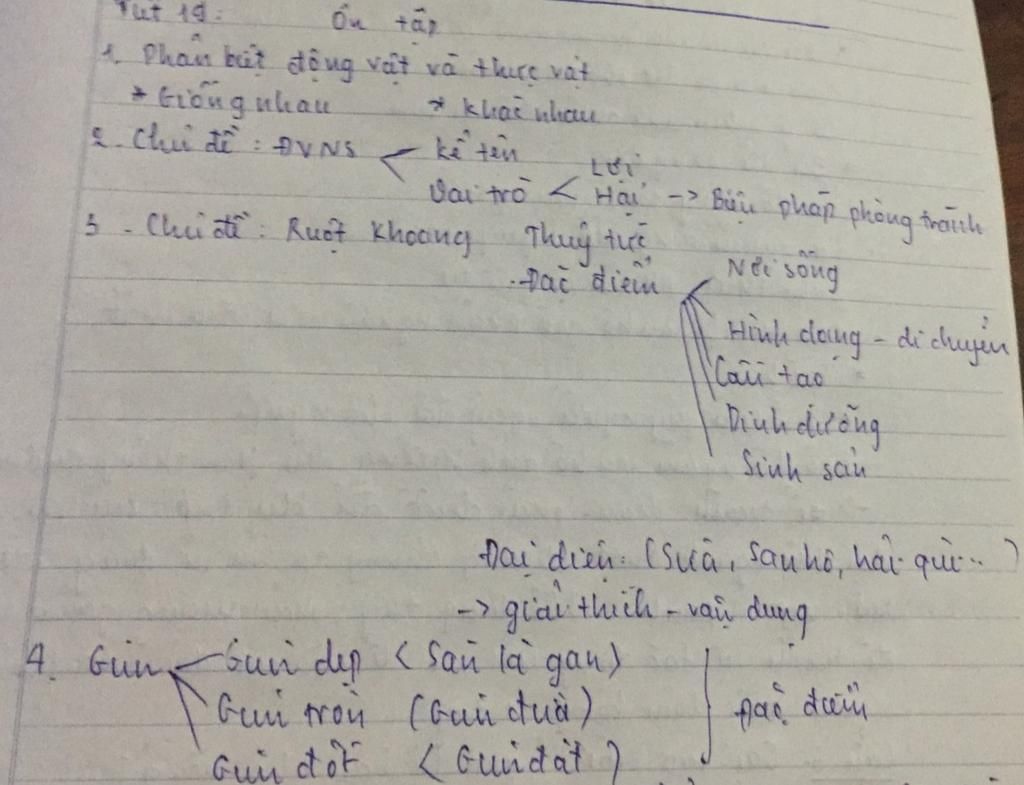 Tiết 19: Ôn tập
1. Phân biệt động vật và thực vật
* Giống nhau * Khác nhau
2. Chủ đề: ĐVNS < Kể tên
Lợi
Vai trò < Hại -> Biện pháp phòng tránh
3. Chủ đề: Ruột Khoang Thuỷ tức
Nơi sống
. Đặc điểm
Hình dạng - di chuyển
Cấu tạo
Dinh dưỡng
Sinh sản
Đại diện: (Sứa, San hô, hải quì..)
-> giải thích - vận dụng
4. Giun Giun dẹp (Sán lá gan)
Giun tròn (Giun đũa) Đặc điểm
Giun đốt (Giun đất)